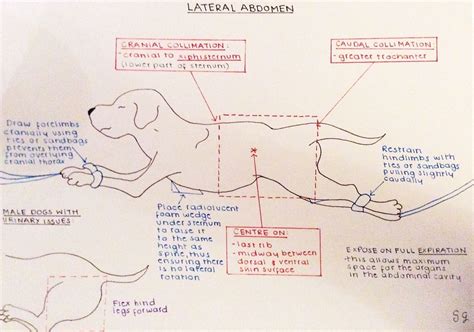 LATERAL ABDOMEN
CRANIAL COLLIMATION:
- cranial to xiphisternum
(lower part of sternum)
CAUDAL COLLIMATION
- greater trochanter
Draw forelimbs
cranially using
ties or sandbags
prevents them
from overlying
cranial thorax
Restrain
hindlimbs with
ties or sandbags
pulling slightly
caudally
Place radiolucent
foam wedge
under sternum
to raise it
to the same
height as
spine, thus
ensuring there
is no lateral
rotation
CENTRE ON:
- last rib
- midway between
dorsal & ventral
skin surface
EXPOSE ON FULL EXPIRATION
- this allows maximum
space for the organs
in the abdominal cavity
MALE DOGS WITH
URINARY ISSUES:
Flex hind
legs forward